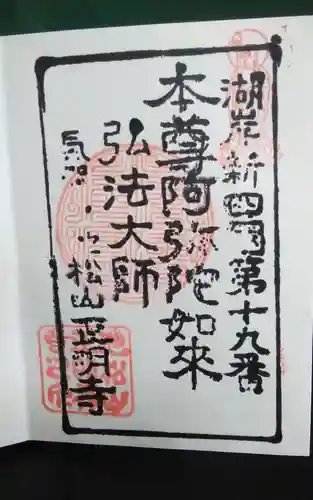 湖岸新四国第十九番
本尊阿弥陀如來
弘法大師
松山正明寺